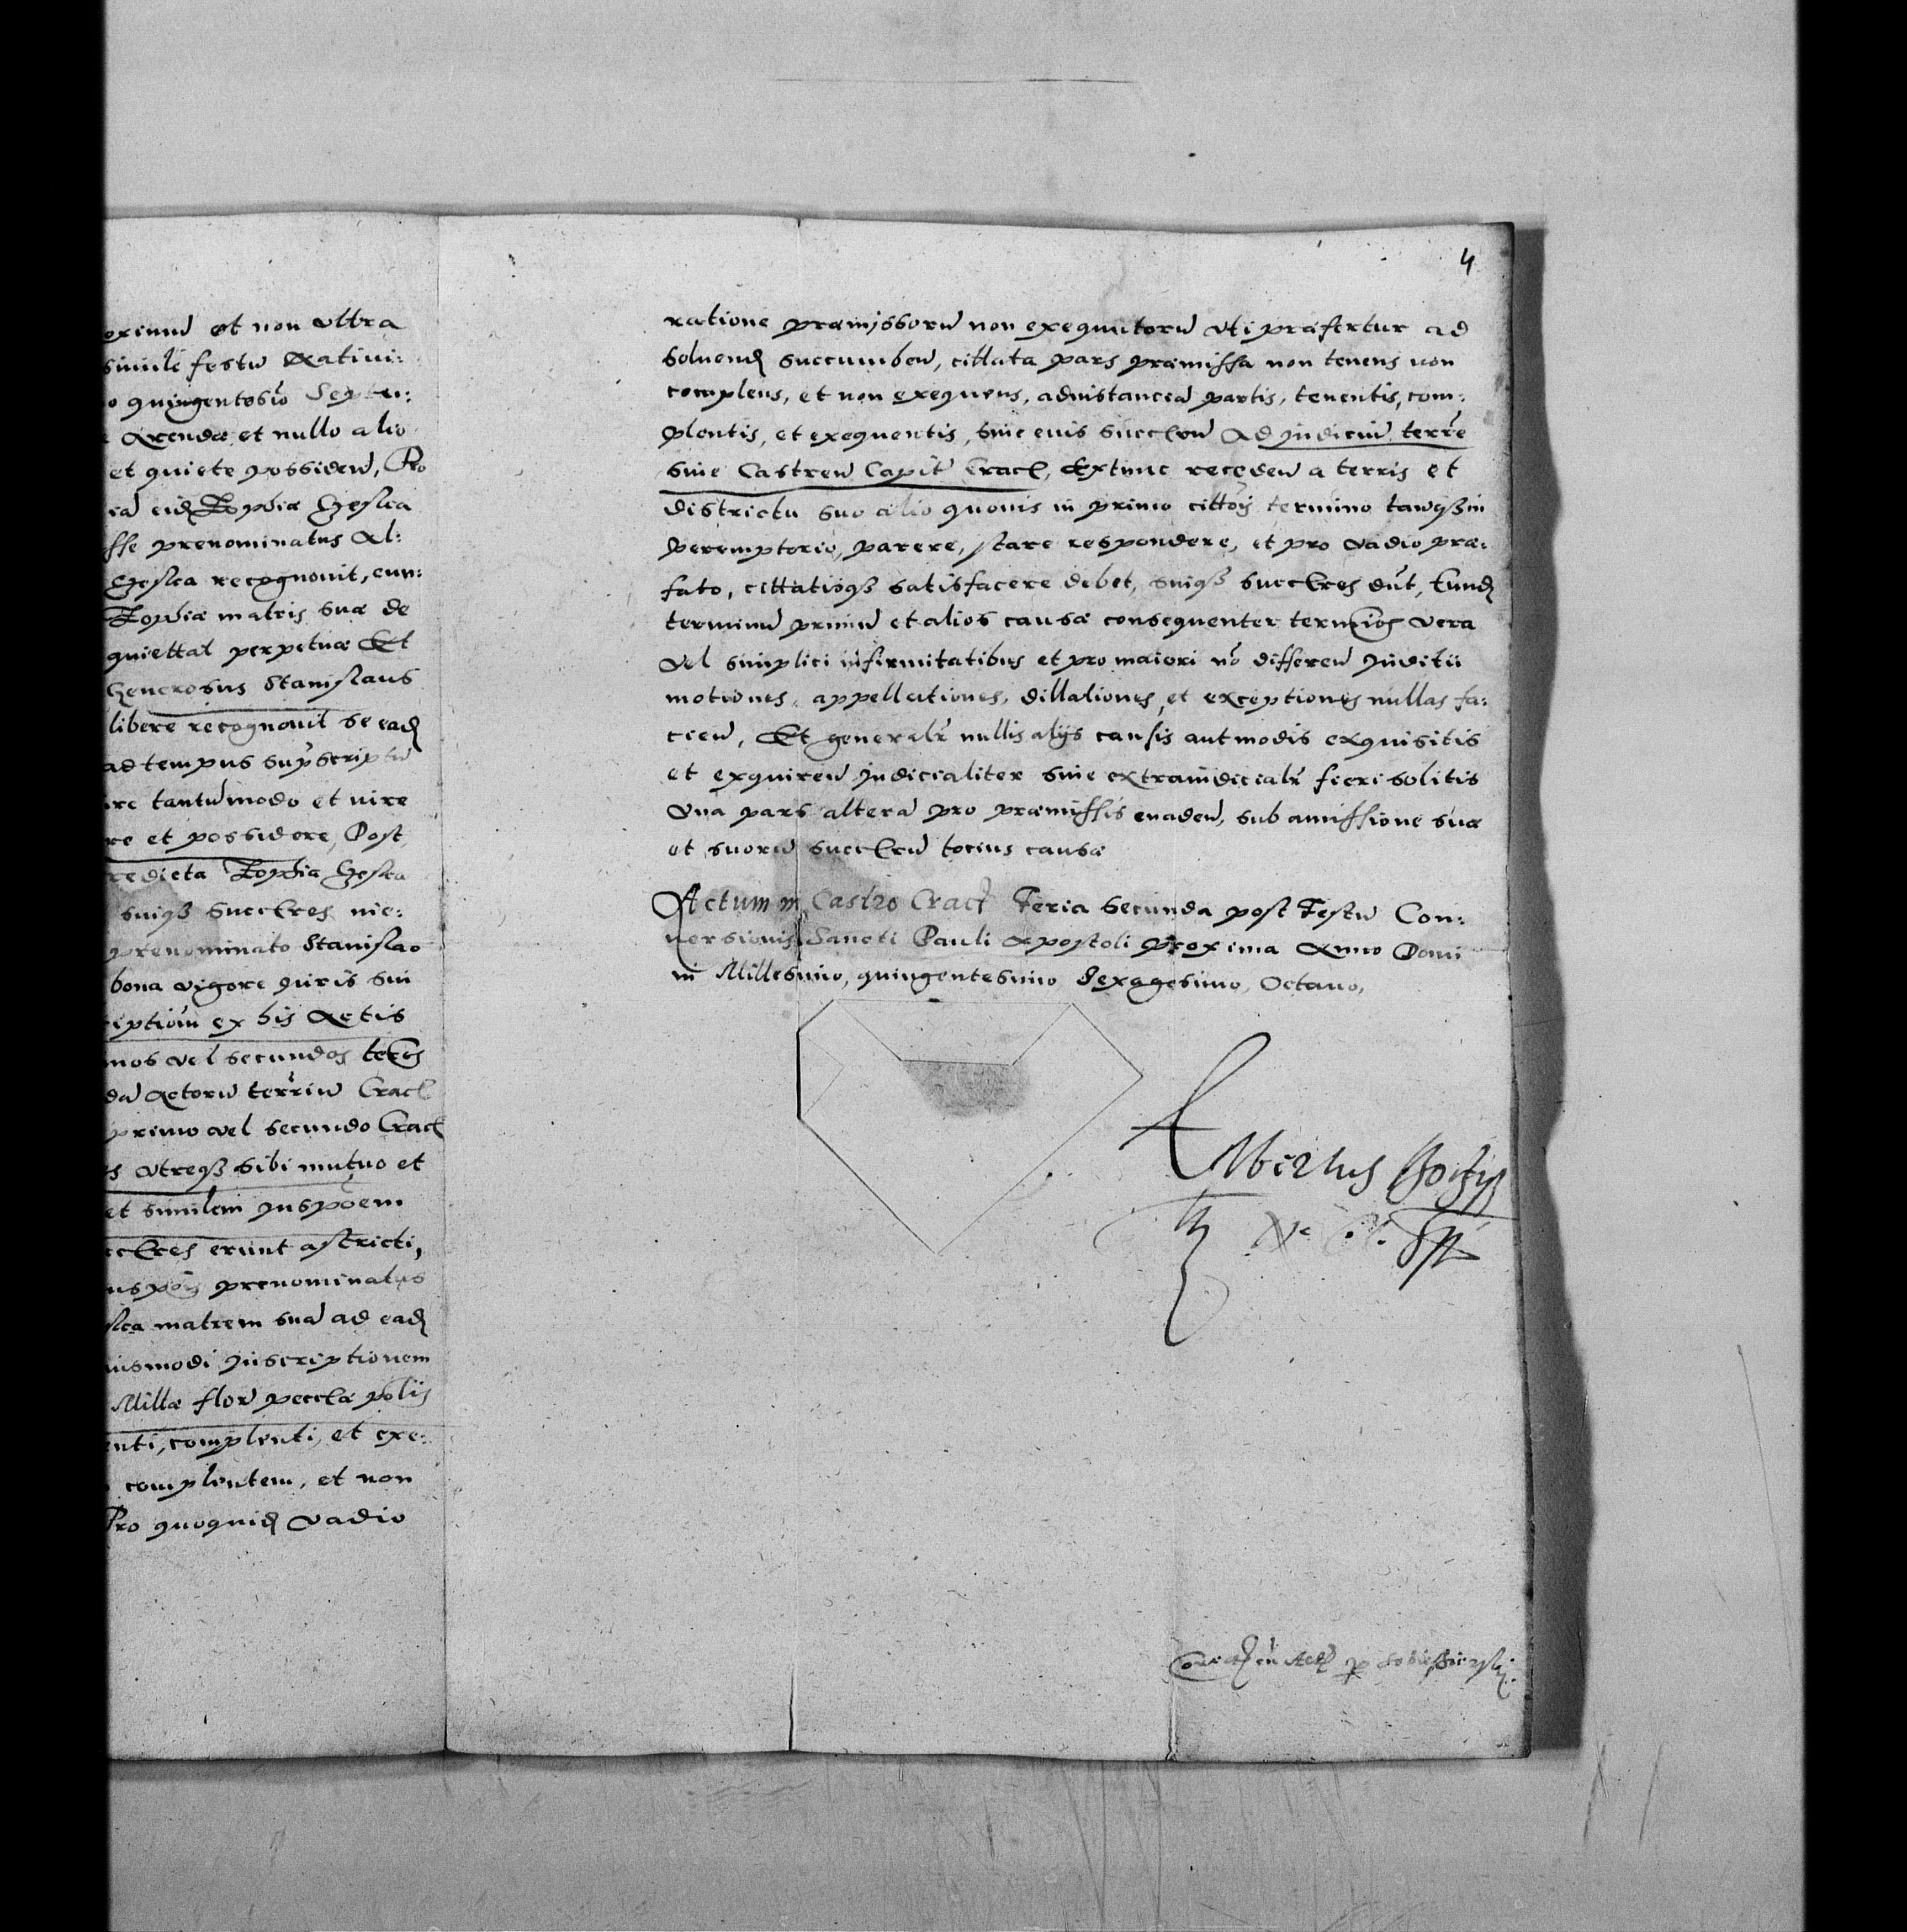 oximu et non ultra
simile festu Nativi:
o quingentesio Septu:
Arendæ, et nullo alio
et quiete possiden, Pro
ea eidz Zophiæ Gheslca
sse prenominatus Al:
Gheslca recognovit, eun:
Zophiæ matris suæ de
quiettat perpetuæ Et
Generosus Stanislaus
libere recognovit se eadz
ad tempus suprscriptu
re tantumodo et vire
re et possidere, Post
redicta Zophia Gheslca
suiqz succres nie:
prenominato Stanislao
bona vigore juris sui
riptiom ex his Actis
mos vel secundos termos
da Actoru terriu Crac
primo vel secundo Crac
s utreqz sibi mutuo et
et similem Inspoem
ccres erunt astricti,
nspois prenominatus
slca matrem sua ad eadz
uismodi Inscriptionem
Millæ flor pecclæ polis
enti, complenti, et exe:
complentem, et non
Pro quoquidz vadio
4
ratione præmissoru non exequutoru uti præfertur ad
solvendz succumben, cittata pars præmissa non tenens non
complens, et non exequens, ad instanciam partis, tenentis, com:
plentis, et exequentis, sive eius succoru Ad Judiciu terre
sive Castren Capit Crac, Extunc receden a terris et
districtu suo alio quovis in primo cittois termino tanqz in
peremptorio, parere, stare respondere, et pro vadio præ:
fato, cittatioqz satisfacere debet, suiqz succres dut, Eundz
terminu primu et alios causæ consequenter termios vera
vel simplici infirmitatibus et pro maiori no differen Juditii
motiones, appellationes, dillationes, et exceptiones nullas fa:
cien, Et generalr nullis alijs causis aut modis exquisitis
et exquiren Judicialiter sive extraiudicialr fieri solitis
Una pars altera pro præmissis evaden, sub amissione suæ
et suoru succru tocius causæ
Actum in Castro Crac Feria Secunda post Festu Con:
versionis Sancti Pauli Apostoli proxima Anno Domi
ni Millesimo, quingentesimo Sexagesimo, Octavo,
Albertus